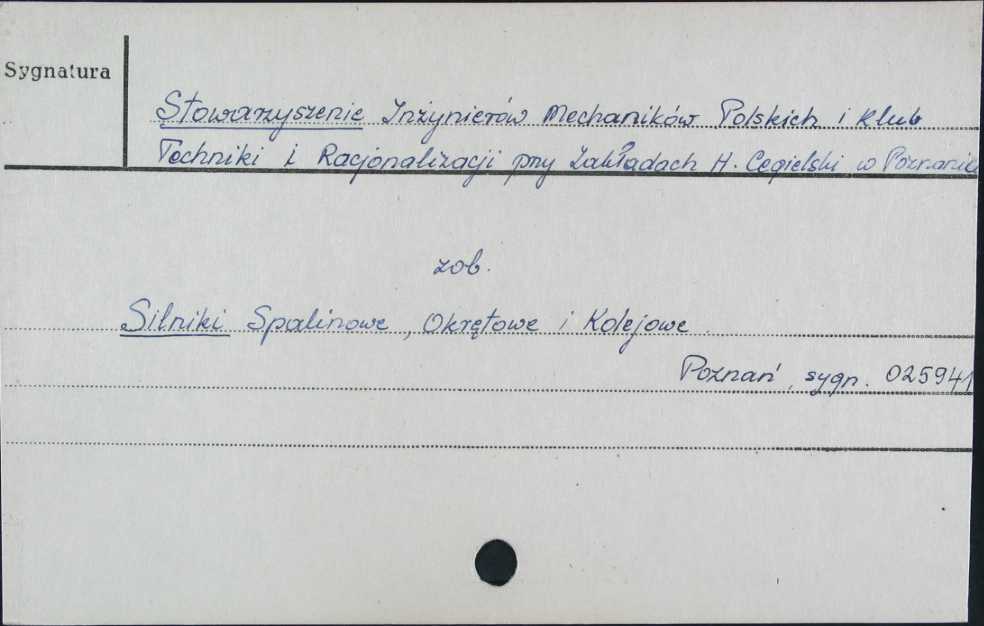 Sygnatura
Stowarzyszenie Inżynierów Mechaników Polskich i Klub
Techniki i Racjonalizacji przy Zakładach H. Cegielski w Poznaniu
zob.
Silniki Spalinowe, Okrętowe i Kolejowe.
Poznań, sygn. 025941